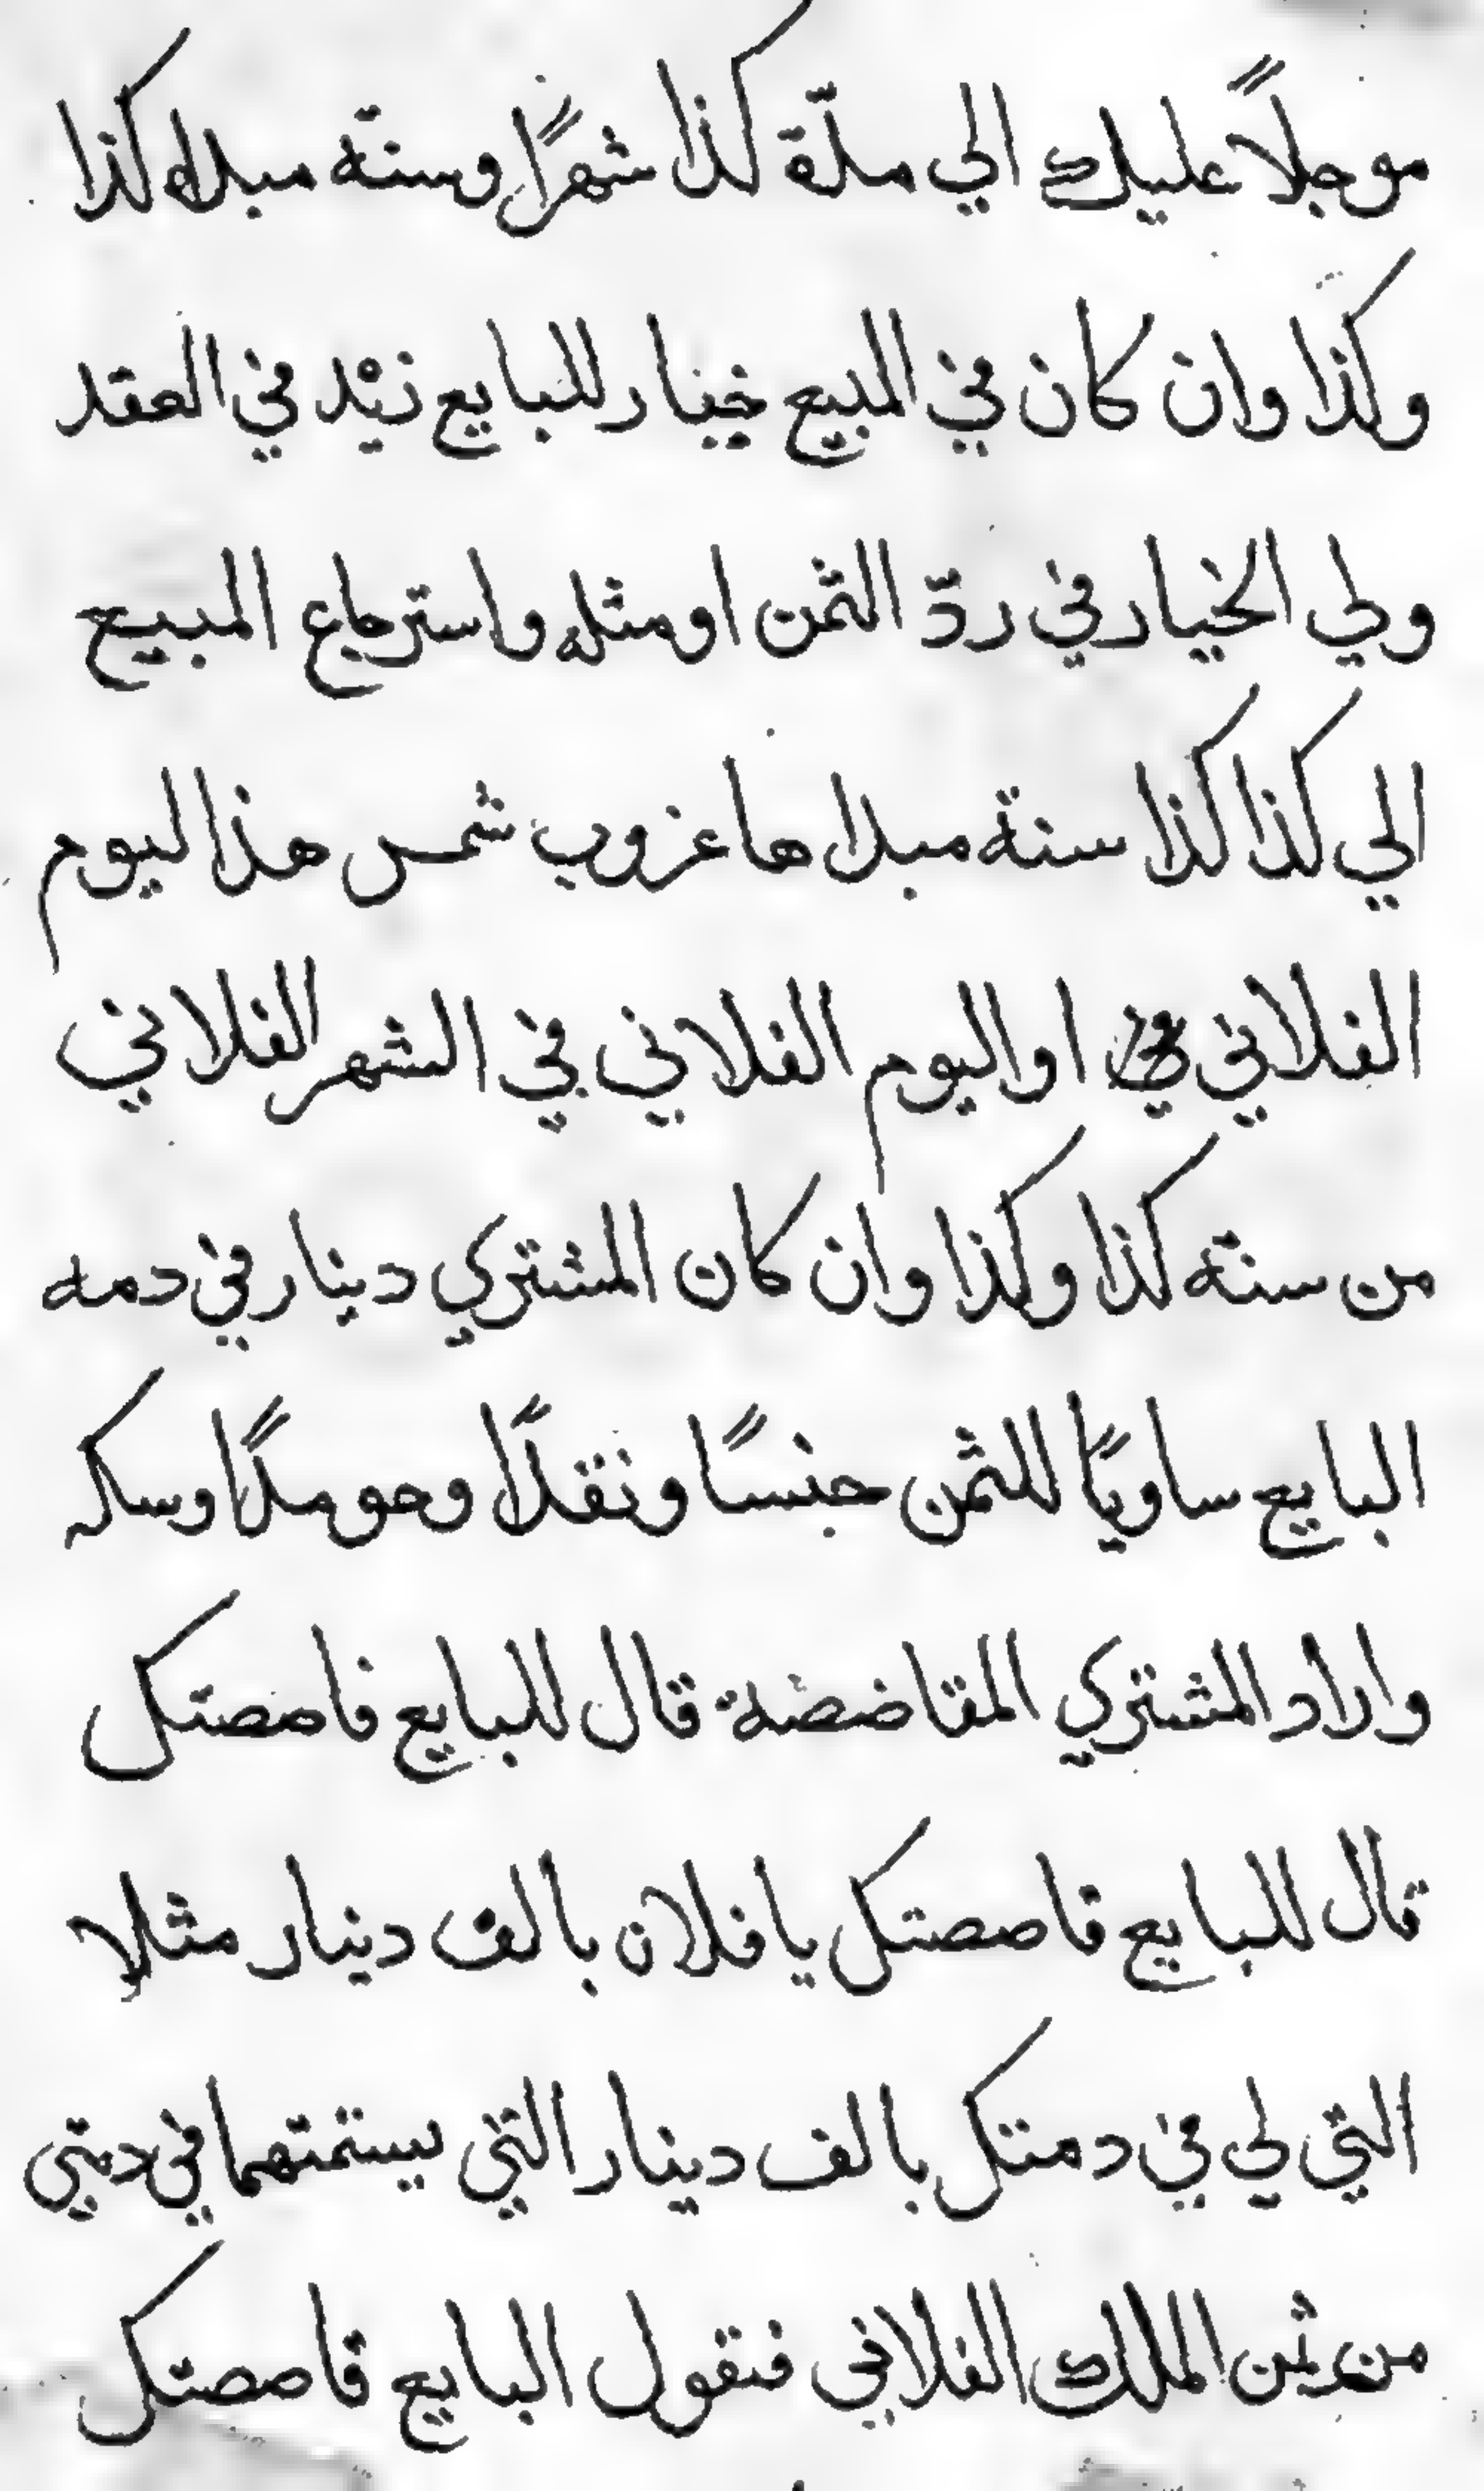 موجلاً عليك الي مدّة كذا شهرًا وسنته مبداه كذا
وكذا وان كان في المبيع خيار للبايع زيْد في العقد
ولي الخيار في ردّ الثمن او مثله واسترجاع المبيع
الي كذا كذا سنة مبداها غروب شمس هذا اليوم
الفلاني او اليوم الفلاني في الشهر الفلاني
من سنته كذا وكذا وان كان المشتري دينار في دمه
البايع ساويًا للثمن جنسًا ونقدًا وحو مدًا وسكه
واراد المشتري المقاضضة قال للبايع فاصصتك
قال للبايع قاصصتك يا فلان بالف دينار مثلا
التي لي في دمتك بالف دينار التي يستمتهما في دمتي
من ثمن الملك الفلاني فنقول البايع قاصصتك